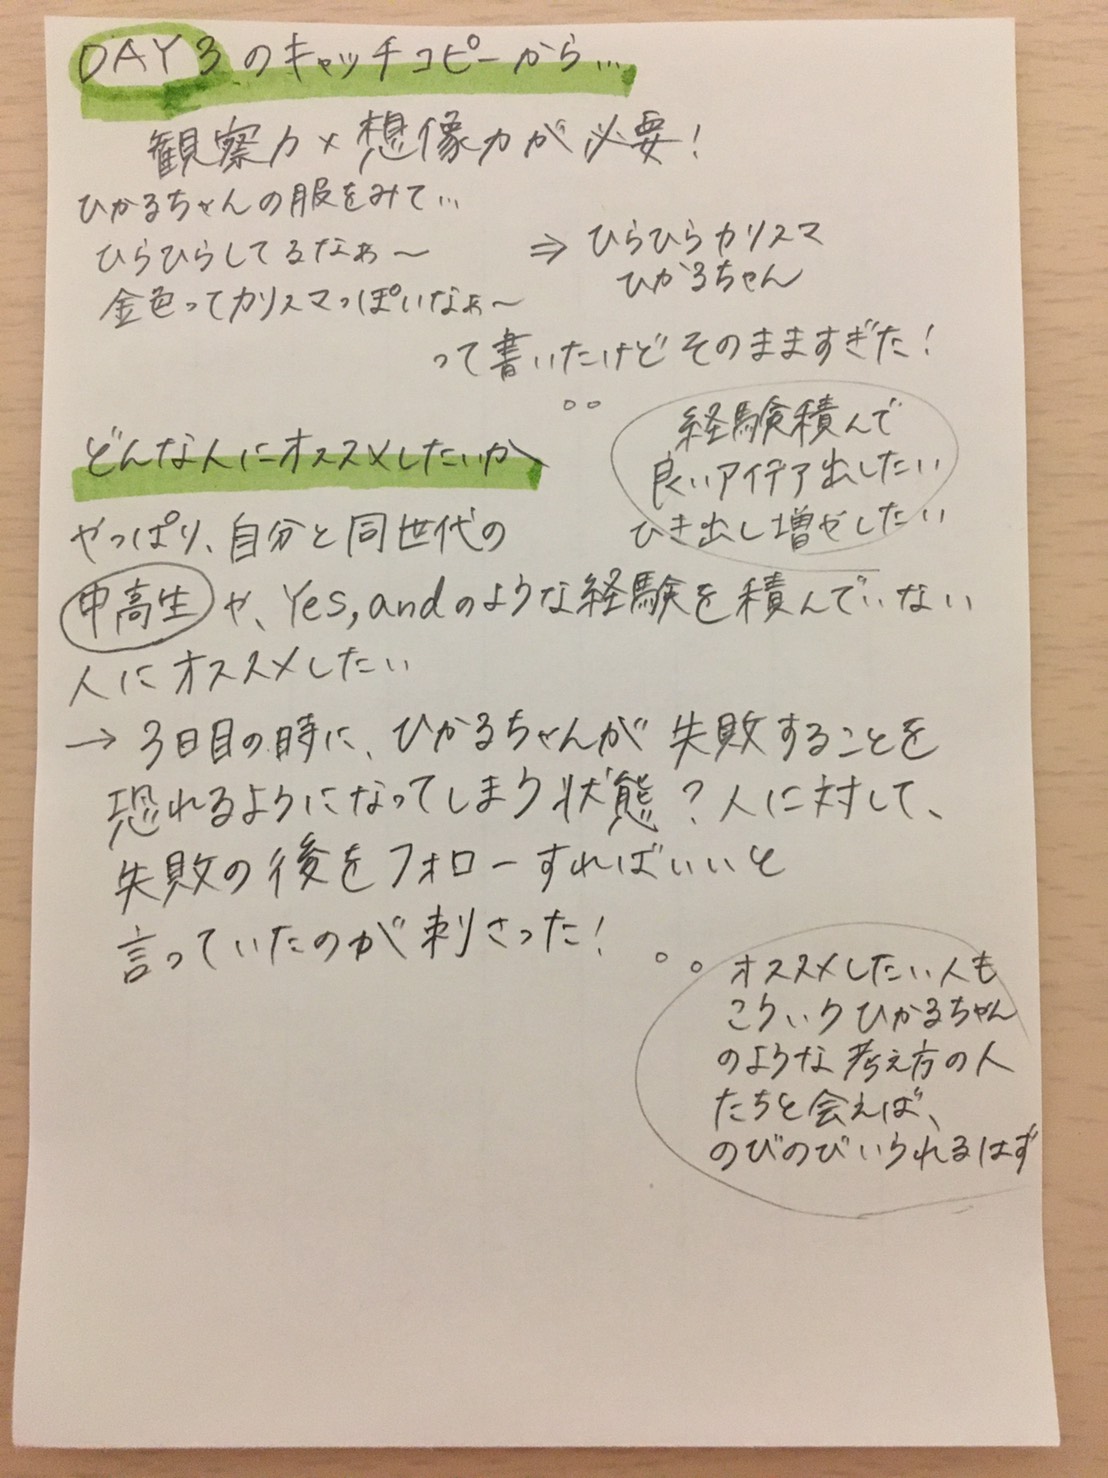 DAY3のキャッチコピーから…
観察力×想像力が必要!
ひかるちゃんの服をみて…
ひらひらしてるなぁ〜
金色ってカリスマっぽいなぁ〜
⇒ ひらひらカリスマ
ひかるちゃん
って書いたけどそのまますぎた!
経験積んで
良いアイデア出したい
ひき出し増やしたい
どんな人にオススメしたいか
やっぱり、自分と同世代の
中高生や、Yes,andのような経験を積んでいない
人にオススメしたい
→ 3日目の時に、ひかるちゃんが失敗することを
恐れるようになってしまう状態?人に対して、
失敗の後をフォローすればいいと
言っていたのが刺さった!
オススメしたい人も
こういうひかるちゃん
のような考え方の人
たちと会えば、
のびのびいられるはず